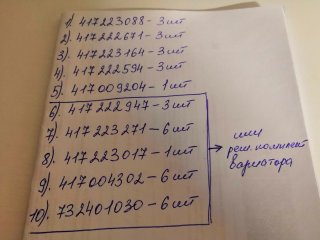 1). 417223088 - 3 шт
2). 417222671 - 3 шт
3). 417223164 - 3 шт
4). 417222594 - 3 шт
5). 417009204 - 1 шт
6). 417222947 - 3 шт
7). 417223271 - 6 шт
8). 417223017 - 1 шт
9). 417004302 - 6 шт
10). 732401030 - 6 шт
или
рем. комплект
вариатора